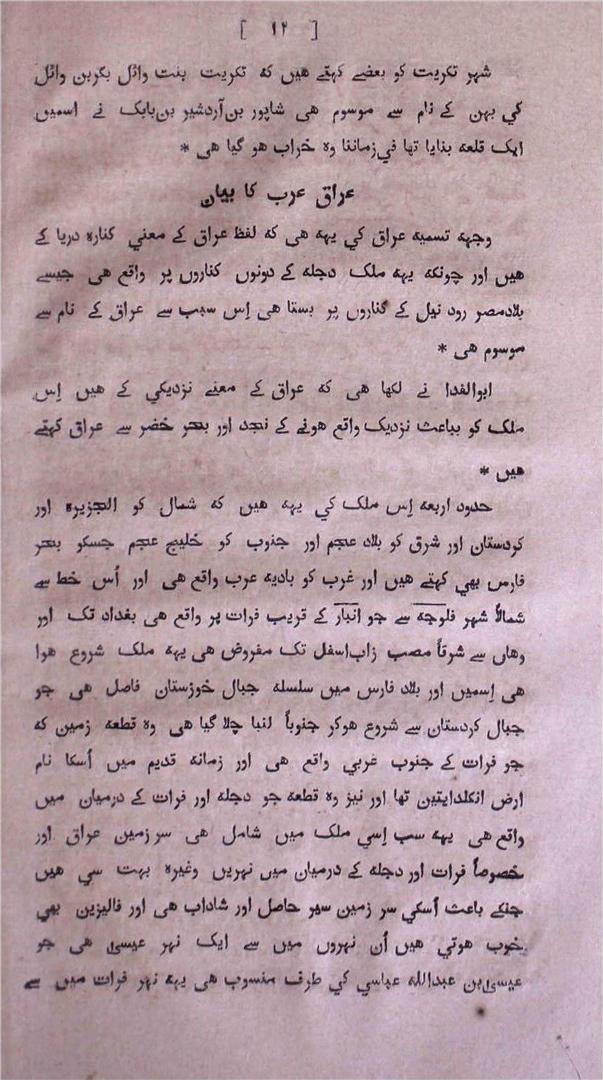 [ ۱۲ ]
شہر تکریت کو بعضے کہتے ھیں کہ تکریت بنت وائل بکربن وائل
کي بہن کے نام سے موسوم ھی شاپور بن‌آردشیر بن‌بابک نے اسمیں
ایک قلعہ بنایا تھا في‌زماننا وہ خراب ھو گیا ھی *
عراق عرب کا بیان
وجہہ تسمیہ عراق کي یہہ ھی کہ لفظ عراق کے معني کنارہ دریا کے
ھیں اور چونکہ یہہ ملک دجلہ کے دونوں کناروں پر واقع ھی جیسے
بلادمصر رود نیل کے کناروں پر بستا ھی اِس سبب سے عراق کے نام سے
موسوم ھی *
ابوالفدا نے لکھا ھی کہ عراق کے معنے نزدیکي کے ھیں اِس
ملک کو بباعث نزدیک واقع ھونے کے نجد اور بحر خضر سے عراق کہتے
ھیں *
حدود اربعہ اِس ملک کي یہہ ھیں کہ شمال کو الجزیرہ اور
کردستان اور شرق کو بلاد عجم اور جنوب کو خلیج عجم جسکو بحر
فارس بھي کہتے ھیں اور غرب کو بادیہ عرب واقع ھی اور اُس خط سے
شمالاً شہر فلوجہ سے جو انبار کے قریب فرات پر واقع ھی بغداد تک اور
وھاں سے شرقاً مصب زاب‌اسفل تک مفروض ھی یہہ ملک شروع ھوا
ھی اِسمیں اور بلاد فارس میں سلسلہ جبال خوزستان فاصل ھی جو
جبال کردستان سے شروع ھوکر جنوباً لنبا چلا گیا ھی وہ قطعہ زمین کہ
جو فرات کے جنوب غربي واقع ھی اور زمانہ قدیم میں اُسکا نام
ارض انکلدایتین تھا اور نیز وہ قطعہ جو دجلہ اور فرات کے درمیان میں
واقع ھی یہہ سب اِسي ملک میں شامل ھی سر زمین عراق اور
خصوصاً فرات اور دجلہ کے درمیان میں نہریں وغیرہ بہت سي ھیں
جنکے باعث اُسکي سر زمین سیر حاصل اور شاداب ھی اور فالیزین بھي
خوب ھوتي ھیں اُن نہروں میں سے ایک نہر عیسیٰ ھی جو
عیسیٰ‌بن عبداللہ عباسي کي طرف منسوب ھی یہہ نہر فرات میں سے